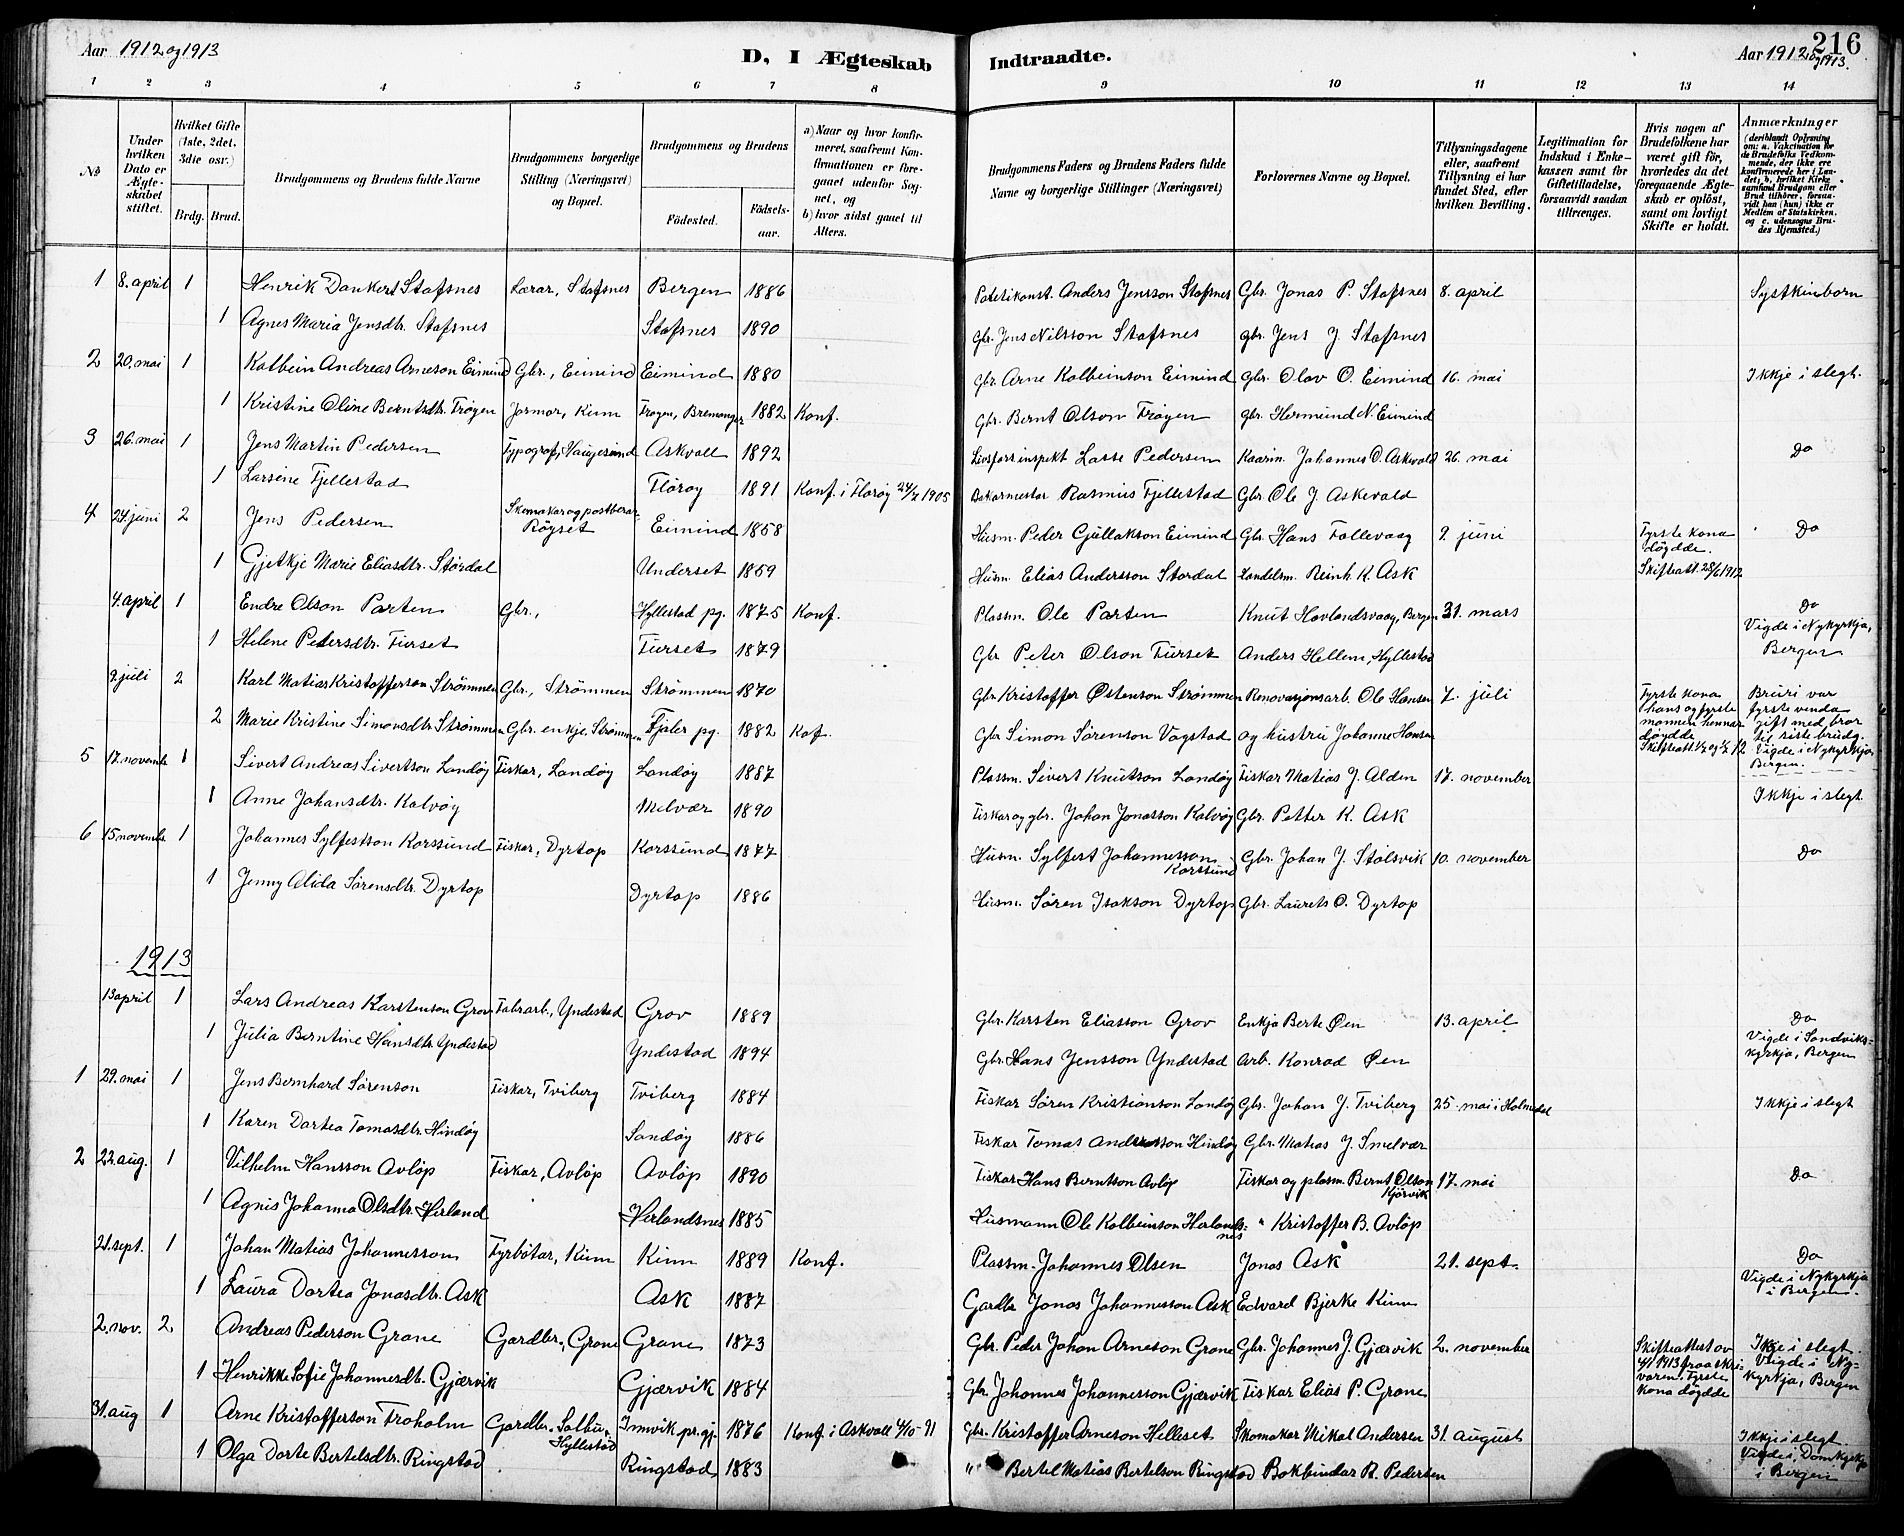 Aar 1912 og 1913
D, I Ægteskab
Indtraadte.
216
Aar 1912 og 1913.
1 2 3 4 5 6 7 8 9 10 11 12 13 14
No
Under hvilken Dato er Ægteskabet stiftet.
Hvilket Gifte (1ste, 2det, 3die osr.)
Brdg. Brud.
Brudgommens og Brudens fulde Navne
Brudgommens borgerlige Stilling (Næringsvei) og Bopæl.
Brudgommens og Brudens
Fødested.
Fødselsaar.
a) Naar og hvor konfirmeret, saafremt Konfirmationen er foregaaet udenfor Sognet, og
b) hvor sidst gaaet til Alters.
Brudgommens Faders og Brudens Faders fulde Navne og borgerlige Stillinger (Næringsvei)
Forlovernes Navne og Bopæl.
Tillysningsdagene eller, saafremt Tillysning ei har fundet Sted, efter hvilken Bevilling.
Legitimation for Indskud i Enkekassen samt for Giftetilladelse, forsaavidt saadan tiltrænges.
Hvis nogen af Brudefolkene har været gift før, hvorledes da det foregaaende Ægteskab er opløst, samt om lovligt Skifte er holdt.
Anmærkninger
(deriblandt Oplysning om: a. Vakcination for de Brudefolks Vedkommende, der ikke ere konfirmerede her i Landet; b. hvilket Kirkesamfund Brudgom eller Brud tilhører, forsaavidt han (hun) ikke er Medlem af Statskirken, og c. udensogns Brudes Hjemsted.)
1 8. april 1 Henrik Dankert Stafsnes Lærar, Stafsnes Bergen 1886 Anders Jensson Stafsnes Gbr. Jonas P. Stafsnes 8. april Systkinborn
1 Agnes Maria Jensdtr. Stafsnes Stafsnes 1890 Gbr. Jens Nilsson Stafsnes gbr. Jens J. Stafsnes
2 20. mai 1 Kolbein Andreas Arneson Eimind Gbr., Eimind Eimind 1880 Gbr. Arne Kolbeinson Eimind Gbr. Olav O. Eimind 16. mai Ikkje i slegt.
1 Kristine Oline Berntsdtr. Frøyen Jormor, Kinn Frøyen, Bremanger 1882 Konf. Gbr. Bernt Olson Frøyen gbr. Hermund N. Eimind
3 26. mai 1 Jens Martin Pedersen Typograf, Haugesund Askvoll 1892 Lasse Pedersen Kaarin. Johannes O. Askvold 26. mai Do
1 Larsine Fjellestad Florøy 1891 Konf. i Florøy 24/7 1905 Bakarmestar Rasmus Fjellestad Gbr. Ole J. Askevold
4 24. juni 2 Jens Pedersen Skomakar og postberar Røyset Eimind 1858 Husm. Peder Gjullakson Eimind Gbr. Hans Follevaag 9. juni Fyrste kona døydde. Do
1 Gjetkje Marie Eliasdtr. Stordal Underset 1859 Husm. Elias Andersson Stordal Landelm. Reinh. K. Ask Skifteatt. 25/6 1912
4. april 1 Endre Olson Parten Gbr., Hyllestad pg. 1875 Konf. Plassm. Ole Parten Knut Havlandsvaag, Bergen 31. mars Do Vigde i Nykyrkja,
1 Helene Pedersdtr. Furset Furset 1879 Gbr Peter Olson Furset Anders Hellem, Hyllestad Bergen
9. juli 2 Karl Matias Kristofferson Strømmen Gbr., Strømmen Strømmen 1870 Gbr. Kristoffer Østenson Strømmen Renovasjonsarb. Ole Hansen 7. juli Fyrste kona hans og fyrste mannen hennar døydde Bruri var fyrste venda gift med bror til siste brudg.
2 Marie Kristine Simonsdtr. Strømmen Gbr. enkje, Strømmen Fjaler pg. 1882 Kof. Gbr. Simon Sørenson Vagstad og hustru Johanne Hansen Vigde i Nykyrkja, Bergen.
5 17. novembr 1 Sivert Andreas Sivertson Landøy Fiskar, Landøy Landøy 1887 Plassm. Sivert Knutson Landøy Fiskar Matias J. Alden 17. november
1 Anne Johansdtr. Kalvøy Melvær 1890 Fiskar og gbr. Johan Jonasson Kalvøy Gbr. Petter K. Ask Ikkje i slegt.
6 15. novembr. 1 Johannes Sylfestson Korssund Fiskar, Dyrtop Korssund 1877 Husm. Sylfest Johannesson Korssund Gbr. Johan J. Stølsvik 10. november Do
1 Jenny Alida Sørensdtr. Dyrtop Dyrtop 1886 Husm. Søren Isakson Dyrtop Gbr. Laurits O. Dyrtop
1913
13 april 1 Lars Andreas Karstenson Grov Fabrarb., Yndestad Grov 1889 Gbr. Karsten Eliasson Grov Enkja Berte Øen 13. april Do
1 Julia Berntine Hansdtr. Yndestad Yndestad 1894 Gbr. Hans Jensson Yndestad Arb. Konrad Øen Vigde i Sandvikskyrkja, Bergen
1 29. mai 1 Jens Bernhard Sørenson Fiskar, Tviberg Tviberg 1884 Fiskar Søren Kristianson Landøy Gbr. Johan J. Tviberg 25. mai i Holmedal Ikkje i slegt
1 Karen Dortea Tomasdtr. Hindøy Sandøy 1886 Fiskar Tomas Andersson Hindøy Gbr. Matias J. Smelvær
2 22. aug. 1 Vilhelm Hansson Avløp Fiskar, Avløp Avløp 1890 Fiskar Hans Berntson Avløp Fiskar og plassm. Bernt Olson Kjørvik 17. mai Do
1 Agnis Johanna Olsdtr. Herland Herlandsnes 1885 Husmann Ole Kolbeinson Herlandsnes " Kristoffer B. Avløp
21. sept. 1 Johan Matias Johannesson Fyrbøtar, Kinn Kinn 1889 Konf. Plassm. Johannes Olsen Jonas Ask 21. sept. Do
1 Laura Dortea Jonasdtr. Ask Ask 1887 Gardbr Jonas Johannesson Ask Edvard Bjerke Kinn Vigde i Nykyrkja i Bergen.
2. nov. 2 Andreas Pederson Grane Gardbr., Grane Grane 1873 Gbr. Peder Johan Arneson Grane Gbr. Johannes J. Gjærvik 2. november Skifteattest av 4/1 1913 fraa skrivaren. Fyrste kona døydde Ikkje i slegt. Vigde i Nykyrkja, Bergen
1 Henrikke Sofie Johannesdtr. Gjærvik Gjærvik 1884 Gbr. Johannes Johannesson Gjærvik Fiskar Elias P. Grane
31. aug 1 Arne Kristofferson Froholm Gardbr. Salbu, Hyllestad Innvik pr.gj. 1876 Konf. i Askvoll 4/10-91 Gbr. Kristoffer Arneson Helleset Skomakar Mikal Andersen 31. august Ikkje i slegt
1 Olga Dorte Bertelsdtr. Ringstad Ringstad 1883 " Bertel Matias Bertelson Ringstad Bokbindar R. Pedersen Vigde i Domkyrkja i Bergen